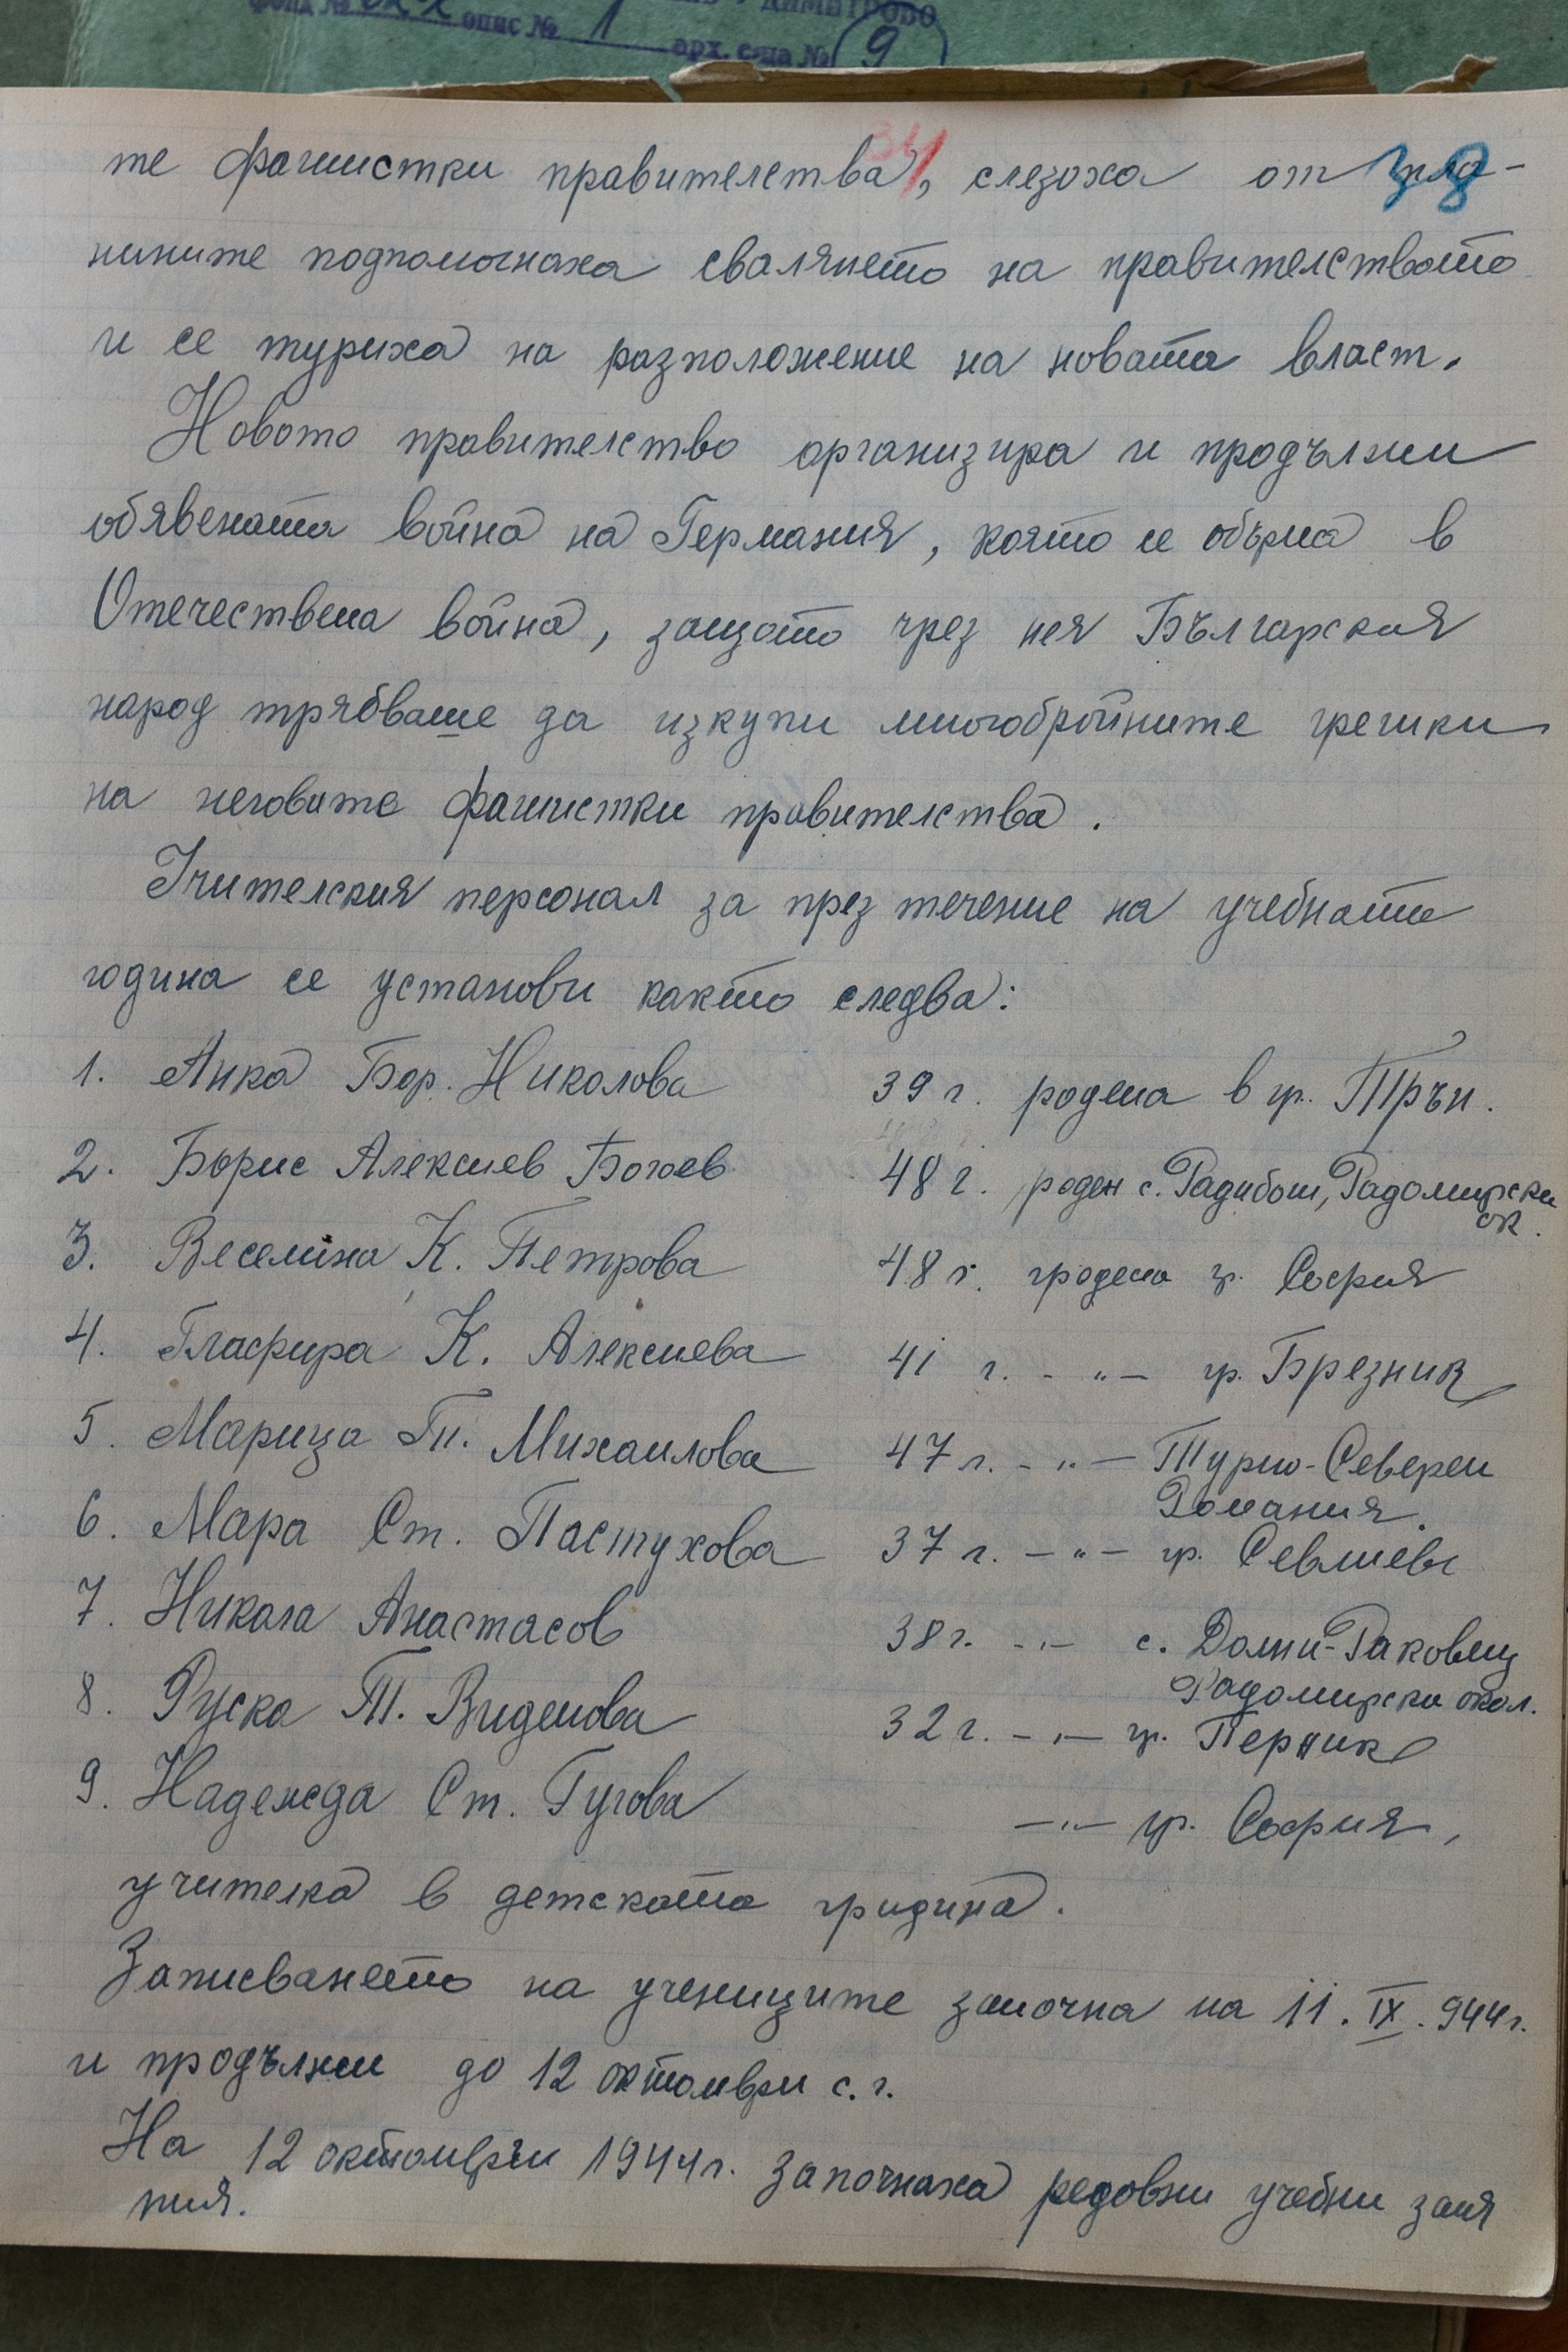 ДИМИТРОВО
фонд № опис № 1 арх. е-ца № 9
34 38
те фашистки правителства, слязоха от пла-
нините подпомогнаха свалянето на правителството
и се туриха на разположение на новата власт.
Новото правителство организира и продължи
обявената война на Германия, която се обърна в
Отечествена война, защото чрез нея Българския
народ трябваше да изкупи многобройните грешки
на неговите фашистки правителства.
Учителския персонал за през течение на учебната
година се установи както следва:
1. Анка Бор. Николова 39 г. родена в гр. Трън.
2. Борис Алексиев Богоев 48 г. роден с. Радибош, Радомирски
ок.
3. Веселина К. Петрова 48 г. родена гр. София
4. Гласфира К. Алексиева 41 г. - " - гр. Брезник
5. Марица Гп. Михаилова 47 г. - " - Турно-Северен
Романия.
6. Мара Ст. Пастухова 37 г. - " - гр. Севлиево
7. Никола Анастасов 38 г. - " - с. Долни-Раковец
Радомирски окол.
8. Руска Т. Виденова 32 г. - " - гр. Перник
9. Надежда Ст. Гугова - " - гр. София,
учителка в детската градина.
Записването на учениците започна на 11. IX. 944 г.
и продължи до 12 октомври с. г.
На 12 октомври 1944 г. започнаха редовни учебни заня
тия.